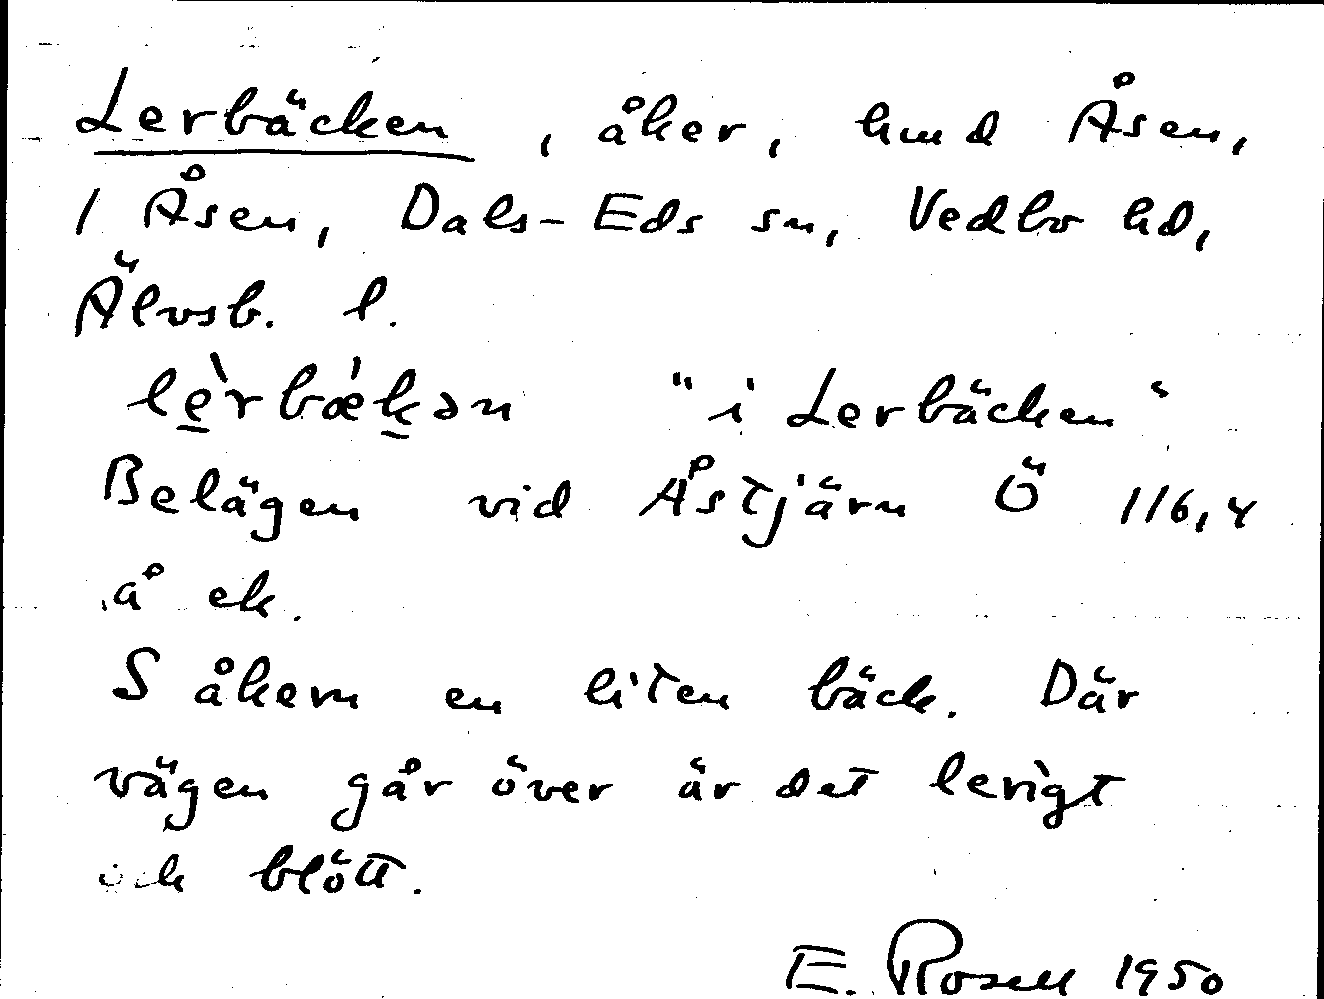 Lerbäcken, åker, hmd Åsen,
1 Åsen, Dals-Eds sn, Vedbo hd,
Älvsb. l.
lè̠rbǽk̠ən "i Lerbäcken"
Belägen vid Åstjärn Ö 116,4
å ek.
S åkern en liten bäck. Där
vägen går över är det lerigt
och blött.
E. Rosell 1950